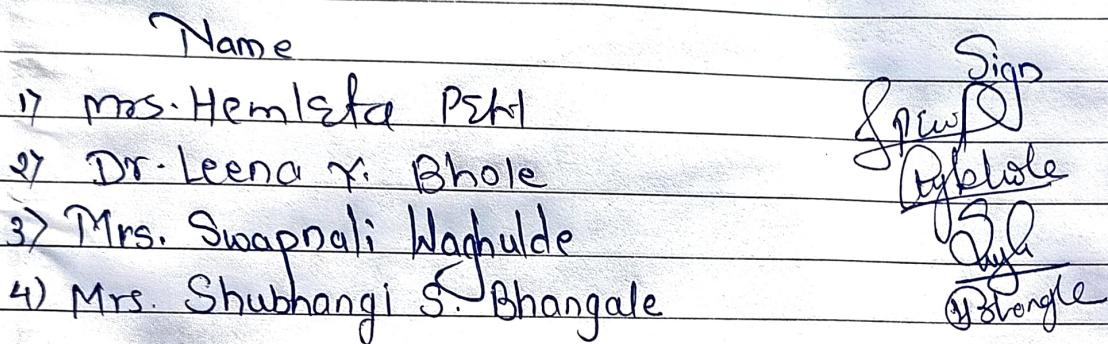 Name Sign
1) Mrs. Hemlata Patil
2) Dr. Leena Y. Bhole
3) Mrs. Swapnali Waghulde
4) Mrs. Shubhangi S. Bhangale